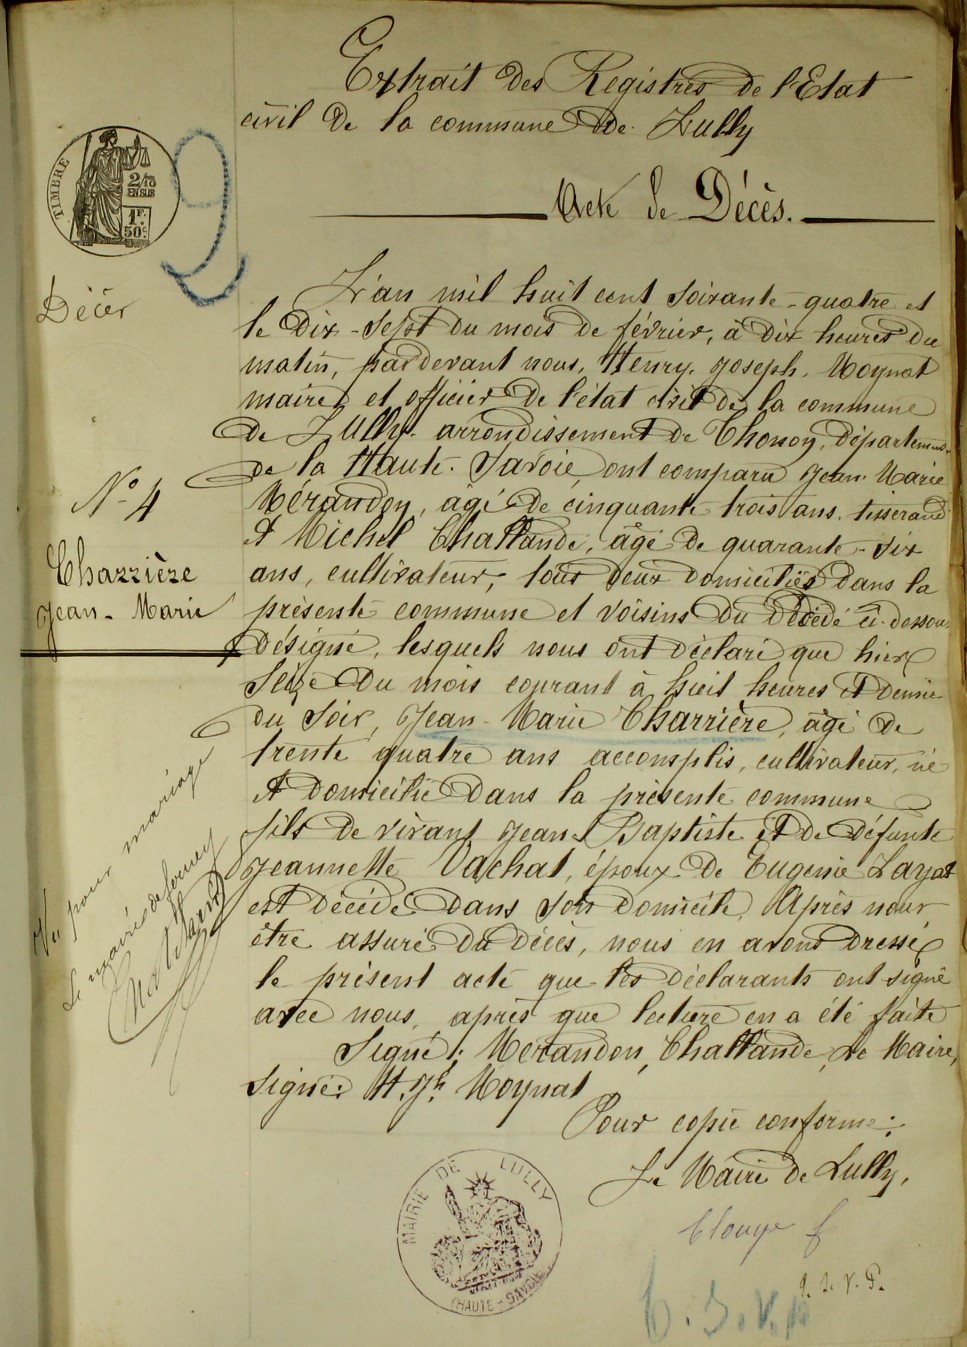 Extrait des Registres de l'Etat
civil de la commune de Lully
Acte de Décès.
TIMBRE
2/10
EN SUS
1F.
50c.
9
Décès
N° 4
Charrière
Jean-Marie
L'an mil huit cent soixante-quatre et
le dix-sept du mois de février, à dix heures du
matin, pardevant nous, Henry, Joseph, Moynat
maire et officier de l'état civil de la commune
de Lully, arrondissement de Thonon, département
de la Haute-Savoie, ont comparu Jean-Marie
Mérandon, âgé de cinquante trois ans, tisserand
et Michel Chattande, âgé de quarante-six
ans, cultivateur; tous deux domiciliés dans la
présente commune et voisins du décédé ci-dessous
désigné, lesquels nous ont déclaré que hier
seize du mois courant à huit heures et demie
du soir, Jean-Marie Charrière, âgé de
trente quatre ans accomplis, cultivateur, né
et domicilié dans la présente commune
fils de vivant Jean-Baptiste et de défunte
Jeannette Vachat, époux de Eugénie Layat
est décédé dans son domicile. Après nous
être assuré du décès, nous en avons dressé
le présent acte que les déclarants ont signé
avec nous, après que lecture en a été faite
Signé: Mérandon, Chattande, Le Maire,
signé: H. Jh. Moynat
Vu pour mariage
Le maire de
Pour copie conforme:
Le Maire de Lully,
MAIRIE DE LULLY
(HAUTE-SAVOIE)
T. S. V. P.
T. S. V. P.